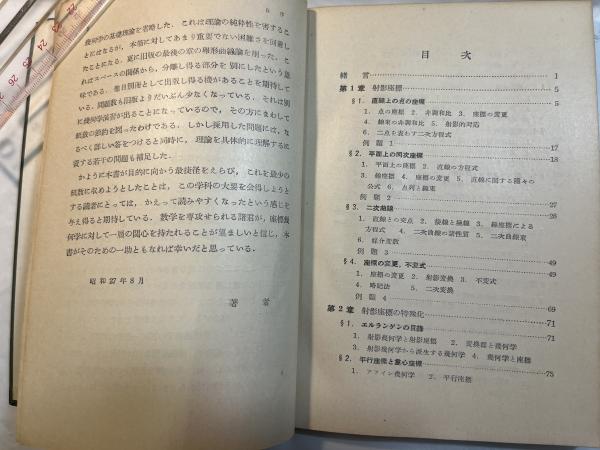 幾何学の基礎理論を省略した. これは理論の純粋性を害するこ
とにはなるが, 本筋に対してあまり重要でない困難さを回避し
たことになる. 更に旧版の最後の章の楕形曲線論を削った. こ
れはスペースの関係から, 分離し得る部分を 別にしたという意
味である. 他日別冊として出版し得る機があることを期待して
いる. 問題数も旧版よりだいぶん少なくなっている. それは別
に幾何学演習が出ることになっているので, その方にまわして
紙数の節約を図ったわけである. しかし採用した問題には, な
るべく詳しい答をつけると同時に, 理論を具体的に理解するに
資する若干の問題も補足した.
かように本書が目的に向かう最捷径をえらび, これを最少の
紙数に収めようとしたことは, この学科の大要を会得しようと
する読者にとっては, かえって読みやすくなったという感じを
与え得ると期待している. 数学を専攻せられる諸君が, 座標幾
何学に対して一層の関心を持たれることが望ましいと信じ, 本
書がそのための一助ともなれば幸いだと思っている.
昭和27年8月
著者
目次
緒言 1
第1章 射影座標 5
§1. 直線上の点の座標 5
1. 点の座標 2. 非調和比 3. 座標の変更
4. 線束の非調和比 5. 射影的対応
6. 二点を表わす二次方程式
例題1 17
§2. 平面上の同次座標 18
1. 平面上の座標 2. 直線の方程式
3. 線座標 4. 座標の変更 5. 直線に関する種々の
公式 6. 点列と線束
例題2 27
§3. 二次曲線 28
1. 直線との交点 2. 接線と極線 3. 線座標による
方程式 4. 二次曲線の諸性質 5. 二次曲線束
6. 媒介変数
例題3 49
§4. 座標の変更, 不変式 49
1. 座標の変更 2. 射影変換 3. 不変式
4. 略記法 5. 二次変換
例題4 69
第2章 射影座標の特殊化 71
§1. エルランゲンの目録 71
1. 射影幾何学と射影座標 2. 変換群と幾何学
3. 射影幾何学から派生する幾何学 4. 幾何学と座標
§2. 平行座標と重心座標 75
1. アフィン幾何学 2. 平行座標